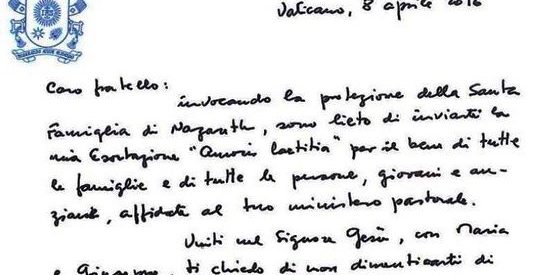 Vaticano, 8 aprile 2016
Caro fratello:
invocando la protezione della Santa
Famiglia di Nazareth, sono lieto di inviarti la
mia Esortazione "Amoris laetitia" per il bene di tutte
le famiglie e di tutte le persone, giovani e an-
ziane, affidate al tuo ministero pastorale.
Uniti nel Signore Gesù, con Maria
e Giuseppe, ti chiedo di non dimenticarti di